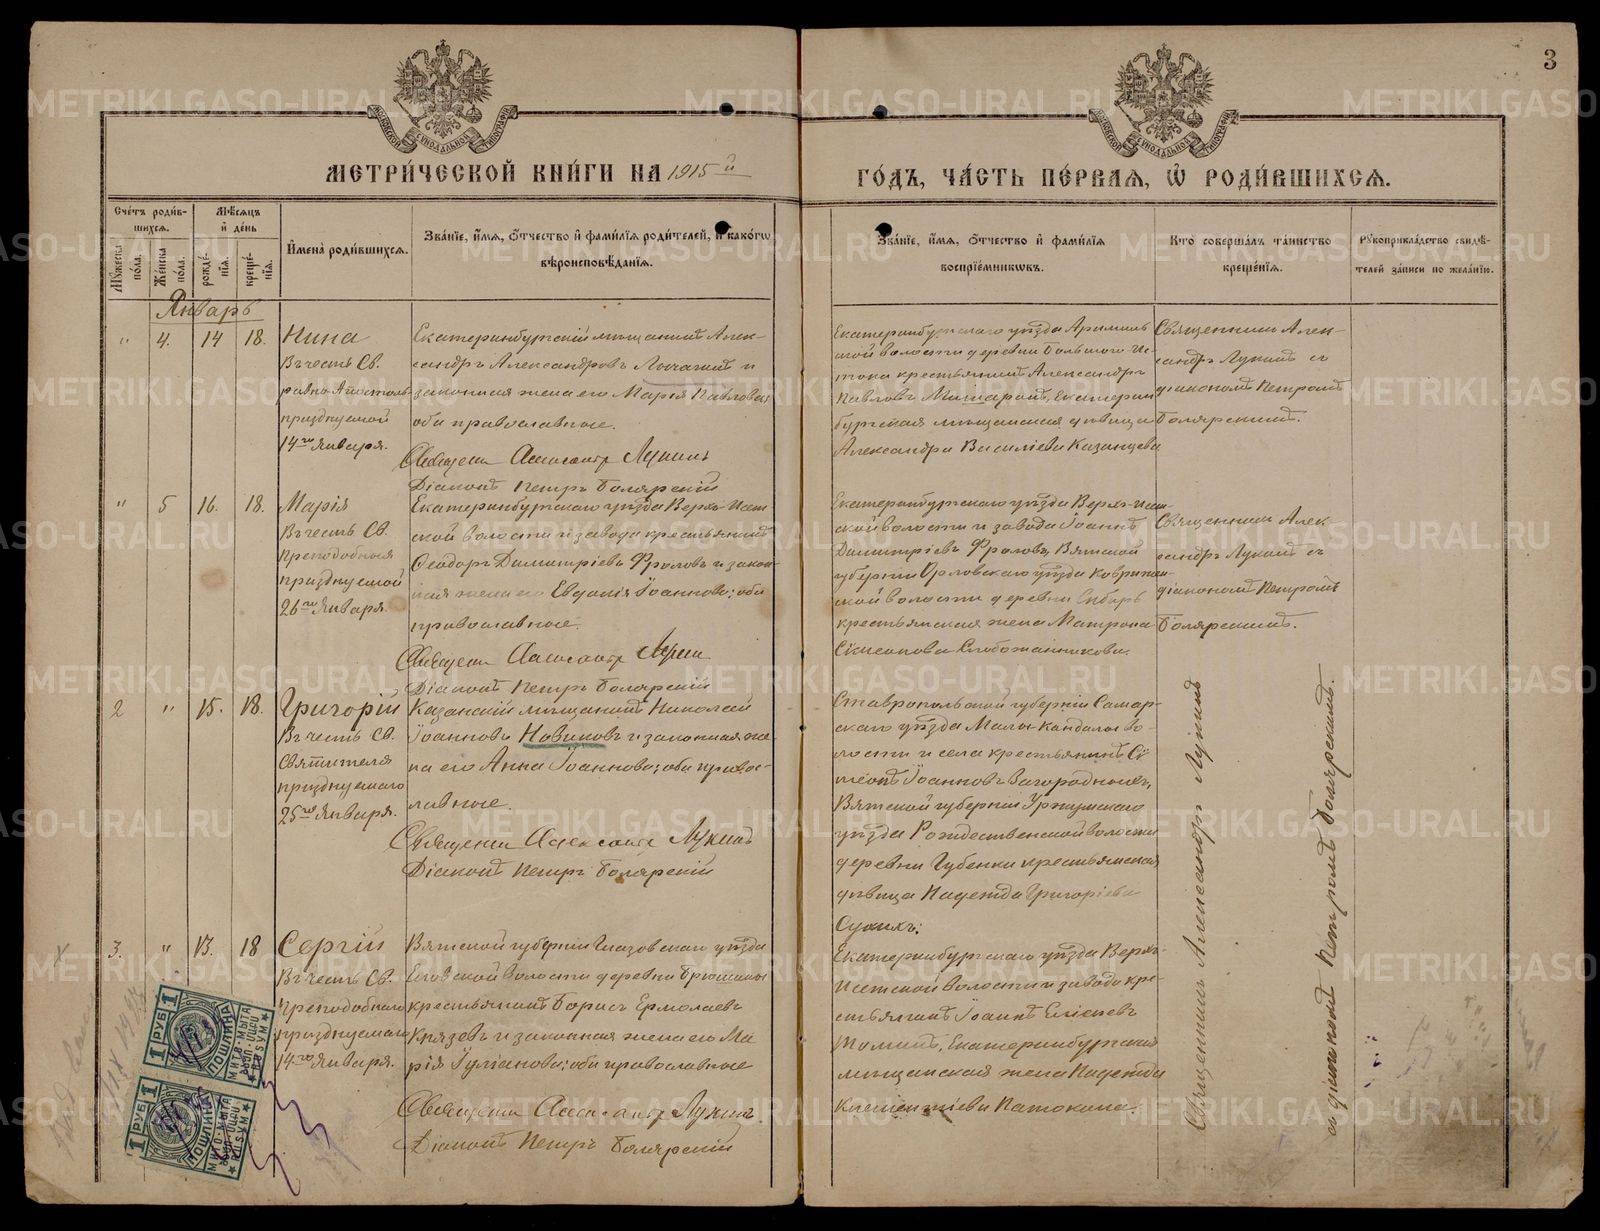 3
МЕТРИ́ЧЕСКОЙ КНИ́ГИ НА 1915й
ГО́ДЪ, ЧА́СТЬ ПЕ́РВАЯ, Ѡ РОДИ́ВШИХСЯ.
Сче́тъ роди́в-
шихся.
Мѣ́сяцъ
и҆ де́нь
Му́жеска
по́ла.
Же́нска
по́ла.
рожде́-
нїѧ.
креще́-
нїѧ.
И҆мена̀ роди́вшихсѧ.
Зва́нїе, и҆́мѧ, ѻ҆́тчество и҆ фами́лїѧ роди́телей, и҆ како́гѡ
вѣроисповѣ́данїѧ.
Зва́нїе, и҆́мѧ, ѻ҆́тчество и҆ фами́лїѧ
воспрїе́мникѡвъ.
Кто̀ соверша́лъ та́инство
креще́нїѧ.
Рꙋкоприкла́дство свидѣ́-
телей за́писи по жела́нїю.
Январь
" 4. 14 18.
Нина
Въ честь Св.
равно-Апостоль
празднуемой
14го Января.
Екатеринбургскій мѣщанинъ Алек-
сандръ Александровъ и
законная жена его Марія Павлова;
оба православные.
Священн Александръ Лукинъ
Діаконъ Петръ Боляpскій
Екатеринбургскаго уѣзда Арамиль
ской волости деревни Большого-Ис-
тока крестьянинъ Александръ
Павловъ Екатерин
бургская мѣщанская дѣвица
Александра Василіева Казанцева
Священникъ Алек-
сандръ Лукинъ съ
діакономъ Петромъ
Болярскимъ.
" 5 16. 18.
Марія
Въ честь Св.
Преподобныя
празднуемой
26го Января.
Екатеринбургскаго уѣзда Верхъ-Исет
ской волости и завода крестьянинъ
Ѳеодоръ Димитріевъ Фроловъ и закон-
ная жена его Евдокія Іоаннова; оба
православные.
Священн Александръ Лукинъ
Діаконъ Петръ Болярскій
Екатеринбургскаго уѣзда Верхъ-Исет
ской волости и завода Іоаннъ
Димитріевъ Фроловъ, Вятской
губерніи Орловскаго уѣзда
ской волости деревни Сибирь
крестьянская жена Матрона
Сімеонова Слобожанинова.
Священникъ Алек
сандръ Лукинъ съ
діакономъ Петромъ
Болярскимъ.
2 " 15. 18.
Григорій
Въ честь Св.
Святителя
празднуемаго
25го Января.
Казанскій мѣщанинъ Николай
Іоанновъ Новиковъ и законная же
на его Анна Іоаннова; оба правос-
лавные.
Священн Александръ Лукинъ
Діаконъ Петръ Болярскій
Ставропольской губерніи Самар-
скаго уѣзда Мало-Кандалы во-
лости и села крестьянинъ Сі
меонъ Іоанновъ Загородныхъ,
Вятской губерніи Уржумскаго
уѣзда Рождественской волости
деревни Губенки крестьянская
дѣвица Надежда Григоріева
Священникъ Александръ Лукинъ
съ діакономъ Петромъ Болярскимъ.
3. " 13. 18
Сергій
Въ честь Св.
Преподобнаго
празднуемаго
14го Января.
Вятской губерніи Глазовскаго уѣзда
Еловской волости деревни Брюшины
крестьянинъ Борисъ Ермолаевъ
Князевъ и законная жена его Ма
рія Іуліанова; оба православные
Священн Александръ Лукинъ
Діаконъ Петръ Болярскій
Екатеринбургскаго уѣзда Верхъ-
Исетской волости и завода кре-
стьянинъ Іоаннъ Елісеевъ
Екатеринбургская
мѣщанская жена Надежда
Климентіева Патокина.
1 РУБ 1
ПОШЛИНА
1 РУБ 1
ПОШЛИНА
METRIKI.GASO-URAL.RU